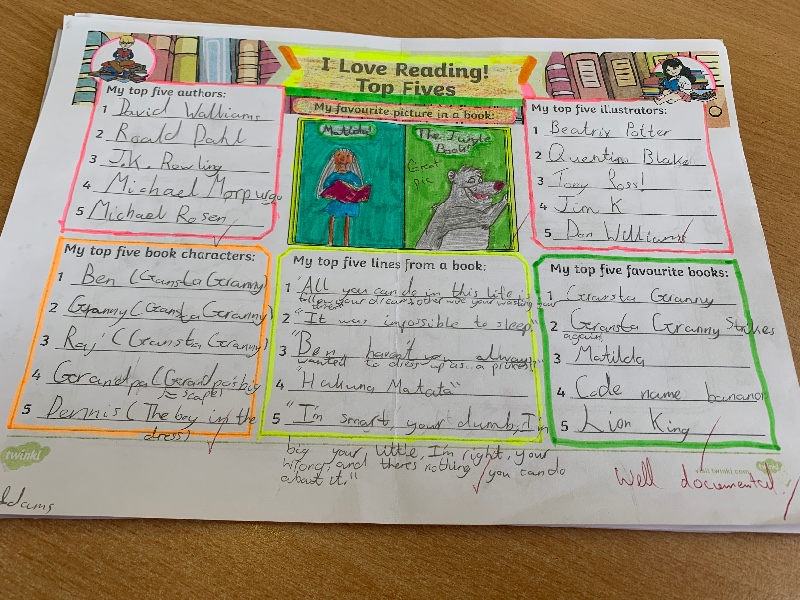 I Love Reading!
Top Fives
My top five authors:
1 David Walliams
2 Roald Dahl
3 J.K. Rowling
4 Michael Morpurgo
5 Michael Rosen
My favourite picture in a book:
Matilda!
The Jungle
Book!
Great
pic
My top five illustrators:
1 Beatrix Potter
2 Quentin Blake
3 Toey Ross!
4 Jim K
5 Dan Williams
My top five book characters:
1 Ben (Gansta Granny)
2 Granny (Gansta Granny)
3 Raj (Gransta Granny)
4 Grandpa (Grandpas big
Escape)
5 Dennis (The boy in the
dress)
My top five lines from a book:
1 All you can do in this life is
follow your dreams other wise your wasting your
2 "It was impossible to sleep"
3 "Ben haven't you always
wanted to dress up as a
4 "Hakuna Matata"
5 "I'm smart, your dumb, I'm
big your little, I'm right, your
wrong and theres nothing you can do
about it."
My top five favourite books:
1 Gransta Granny
2 Gransta Granny Strikes
again
3 Matilda
4 Code name banana
5 Lion King
twinkl
visit twinkl.com
twinkl
Well documented!
Adams